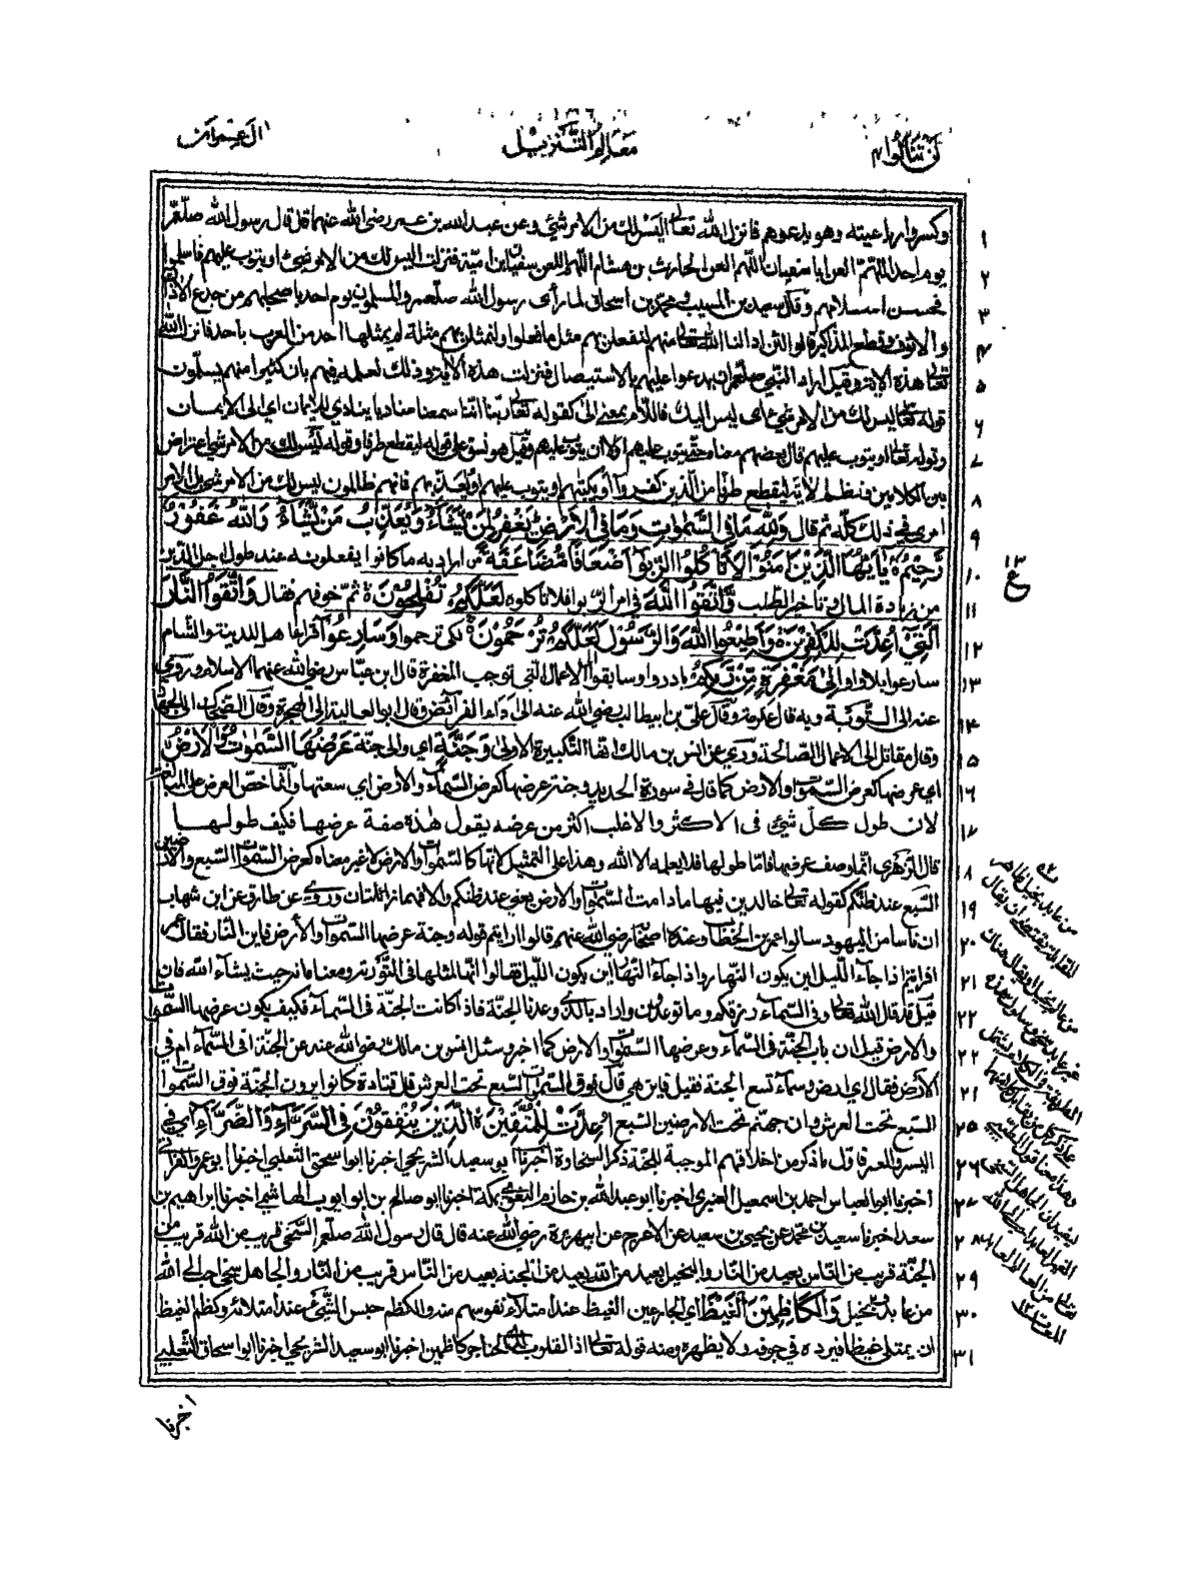 لن تنالوا ٤
معالم التنزيل
ال عمران
وكسروا رباعيته وهو يدعوهم فانزل الله تعالى ليس لك من الامر شيئ وعن عبد الله بن عمر رضي الله عنهما قال قال رسول الله صلعم
يوم احد اللهم العن ابا سفيان اللهم العن الحارث بن هشام اللهم العن صفوان بن امية فنزلت ليس لك من الامر شيئ او يتوب عليهم فاسلموا
فحسن اسلامهم وقال سعيد بن المسيب ومحمد بن اسحاق لما رأى رسول الله صلعم والمسلمون يوم احد ما باصحابهم من جدع الاذان
والانوف وقطع المذاكير قالوا لئن ادالنا الله تعالى منهم لنفعلن بهم مثل ما فعلوا ولنمثلن بهم مثلة لم يمثلها احد من العرب باحد فانزل الله
تعالى هذه الاية وقيل اراد النبي صلعم ان يدعوا عليهم بالاستيصال فنزلت هذه الاية وذلك لعلمه فيهم بان كثيرا منهم يسلمون
قوله تعالى ليس لك من الامر شيئ اى ليس اليك فاللام بمعنى الى كقوله تعالى ربنا اننا سمعنا مناديا ينادي للايمان اى الى الايمان
وقوله تعالى او يتوب عليهم قال بعضهم معناه حتى يتوب عليهم او الا ان يتوب عليهم وقيل هو نسق على قوله ليقطع طرفا وقوله ليس لك من الامر شيئ اعتراض
بين الكلامين فنظم الاية ليقطع طرفا من الذين كفروا او يكبتهم او يتوب عليهم او يعذبهم فانهم ظالمون ليس لك من الامر شيئ بل الامر
امري في ذلك كله ثم قال ولله ما في السموات وما في الارض يغفر لمن يشاء ويعذب من يشاء والله غفور
رحيم يايها الذين امنوا لا تاكلوا الربوا اضعافا مضاعفة اراد به ما كانوا يفعلونه عند طول حل الدين
من زيادة المال وتاخير الطلب واتقوا الله في امر الربوا فلا تاكلوه لعلكم تفلحون ثم خوفهم فقال واتقوا النار
التي اعدت للكفرين واطيعوا الله والرسول لعلكم ترحمون لكي ترحموا وسارعوا قرأ اهل المدينة والشام
سارعوا بلا واو الى مغفرة من ربكم بادروا وسابقوا الى الاعمال التي توجب المغفرة قال ابن عباس رضي الله عنهما الى الاسلام وروي
عنه الى التوبة وبه قال عكرمة وقال علي بن ابيطالب رضي الله عنه الى اداء الفرائض وقال ابو العالية الى الهجرة وقال الضحاك الى الجهاد
وقال مقاتل الى الاعمال الصالحة وروي عن انس بن مالك انها التكبيرة الاولى وجنة اي والى جنة عرضها السموات والارض
اي عرضها كعرض السموات والارض كما قال في سورة الحديد وجنة عرضها كعرض السماء والارض اي سعتها وانما خص العرض على المبالغة
لان طول كل شيئ فى الاكثر والاغلب اكثر من عرضه يقول هذه صفة عرضها فكيف طولها
قال الزهري انما وصف عرضها فاما طولها فلا يعلمه الا الله وهذا على التمثيل لا انها كالسموات والارض لا غير معناه كعرض السموات السبع والارضين
السبع عند ظنكم كقوله تعالى خالدين فيها ما دامت السموات والارض يعني عند ظنكم والا فهما زائلتان وروي عن طارق عن ابن شهاب
ان ناسا من اليهود سالوا عمر بن الخطاب وعنده اصحابه رضي الله عنهم قالوا ارايتم قوله وجنة عرضها السموات والأرض فاين النار فقال عمر
افرايتم اذا جاء الليل اين يكون النهار واذا جاء النهار اين يكون الليل فقالوا انها لمثلها فى التوراة ومعناه انه حيث يشاء الله فان
قيل قد قال الله تعالى وفى السماء رزقكم وما توعدون واراد بالذي وعدنا الجنة فاذا كانت الجنة فى السماء فكيف يكون عرضها السموات
والارض قيل ان باب الجنة فى السماء وعرضها السموات والارض كما اخبر وسئل انس بن مالك رضي الله عنه عن الجنة افى السماء ام فى
الأرض فقال اي ارض وسماء تسع الجنة فقيل فاين هي قال فوق السموات السبع تحت العرش قال قتادة كانوا يرون الجنة فوق السموات
السبع تحت العرش وان جهنم تحت الارضين السبع اعدت للمتقين الذين ينفقون فى السراء والضراء اي في
اليسر والعسر فاول ما ذكر من اخلاقهم الموجبة للجنة ذكر السخاوة اخبرنا ابو سعيد الشريحي اخبرنا ابو اسحق الثعلبي اخبرنا ابو عمرو الفراتي
اخبرنا ابو العباس احمد بن اسمعيل العنبري اخبرنا ابو عبد الله بن حازم البغوي بمكة اخبرنا ابو صالح بن ابو ايوب الهاشمي اخبرنا ابراهيم بن
سعد اخبرنا سعيد بن محمد عن يحيى بن سعيد عن الاعرج عن ابي هريرة رضي الله عنه قال قال رسول الله صلعم السخي قريب من الله قريب من
الجنة قريب من الناس بعيد من النار والبخيل بعيد من الله بعيد من الجنة بعيد من الناس قريب من النار والجاهل سخي احب الى الله
من عابد بخيل والكاظمين الغيظ اي الجارعين الغيظ عند امتلاء نفوسهم منه والكظم حبس الشيئ عند امتلائه وكظم الغيظ
ان يمتلى غيظا فيرده في جوفه ولا يظهره ومنه قوله تعالى اذ القلوب لدى الحناجر كاظمين اخبرنا ابو سعيد الشريحي اخبرنا ابو اسحاق الثعلبي
اخبرنا
١
٢
٣
٤
٥
٦
٧
٨
٩
١٠
١١
١٢
١٣
١٤
١٥
١٦
١٧
١٨
١٩
٢٠
٢١
٢٢
٢٣
٢٤
٢٥
٢٦
٢٧
٢٨
٢٩
٣٠
٣١
١٣
ع
من عابد بخيل